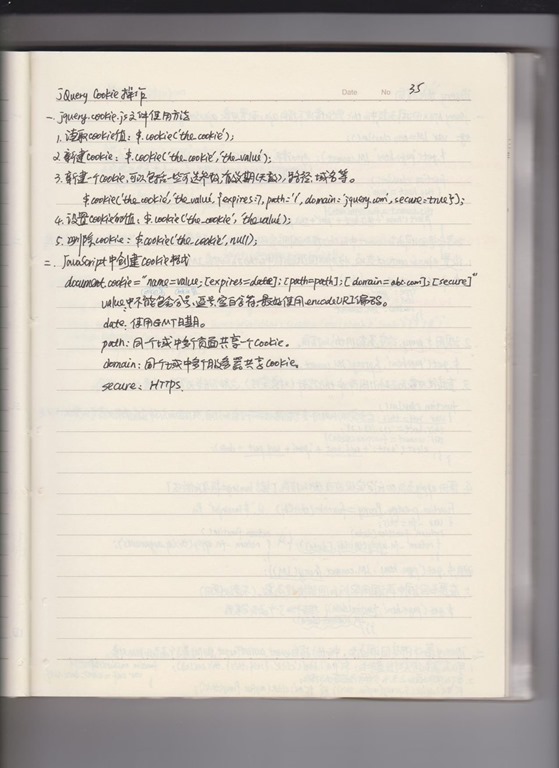 Date No 35
jQuery Cookie操作
一. jquery.cookie.js文件使用方法
1. 读取cookie值: $.cookie('the_cookie');
2. 新建cookie: $.cookie('the_cookie','the_value');
3. 新建一个cookie,可以包括一些可选参数,有效期(天数),路径,域名等。
$.cookie('the_cookie','the_value',{expires:7, path:'/', domain:'jquery.com',secure:true});
4. 设置cookie的值: $.cookie('the_cookie','the_value');
5. 删除cookie: $.cookie('the_cookie',null);
二. JavaScript中创建Cookie格式
document.cookie="name=value;[expires=date];[path=path];[domain=abc.com];[secure]"
value:中不能包含分号,逗号,空白字符,最好使用encodeURI编码。
date:使用GMT日期。
path:同个域中多个页面共享一个Cookie。
domain:同个域中多个服务器共享Cookie。
secure: HTTPS.